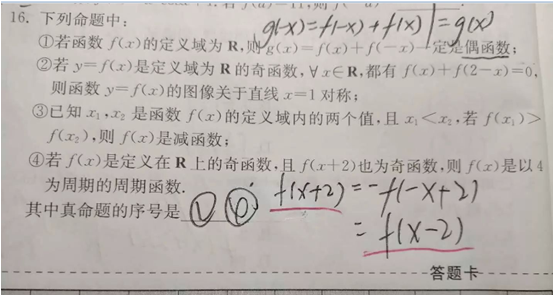 g(-x)=f(-x)+f(x)=g(x)
16. 下列命题中:
①若函数 f(x)的定义域为 R,则 g(x)=f(x)+f(-x)一定是偶函数;
②若 y=f(x)是定义域为 R 的奇函数,∀x∈R,都有 f(x)+f(2-x)=0,
则函数 y=f(x)的图像关于直线 x=1 对称;
③已知 x₁,x₂ 是函数 f(x)的定义域内的两个值,且 x₁<x₂,若 f(x₁)>
f(x₂),则 f(x)是减函数;
④若 f(x)是定义在 R 上的奇函数,且 f(x+2)也为奇函数,则 f(x)是以 4
为周期的周期函数.
其中真命题的序号是 ① ④ f(x+2)=-f(-x+2)
=f(x-2)
答题卡